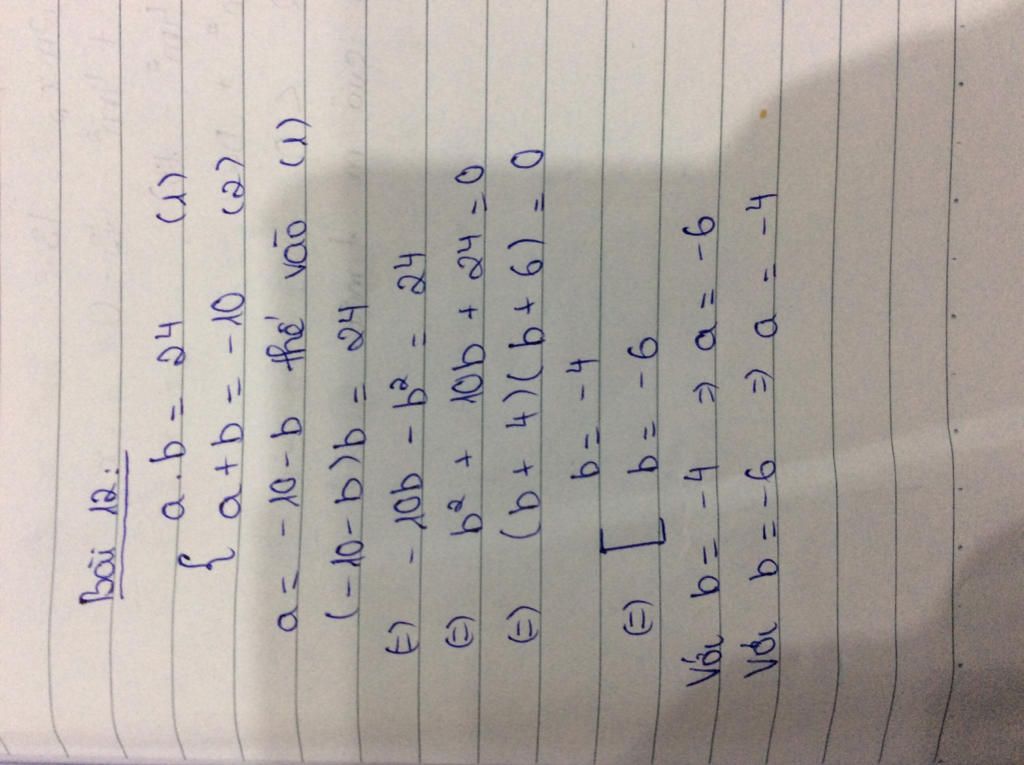 Bài 12:
{ a.b = 24 (1)
a+b = -10 (2)
a = -10 - b thế vào (1)
(-10-b)b = 24
(=) -10b - b² = 24
(=) b² + 10b + 24 = 0
(=) (b + 4)(b + 6) = 0
(=) [ b = -4
b = -6
Với b = -4 => a = -6
Với b = -6 => a = -4